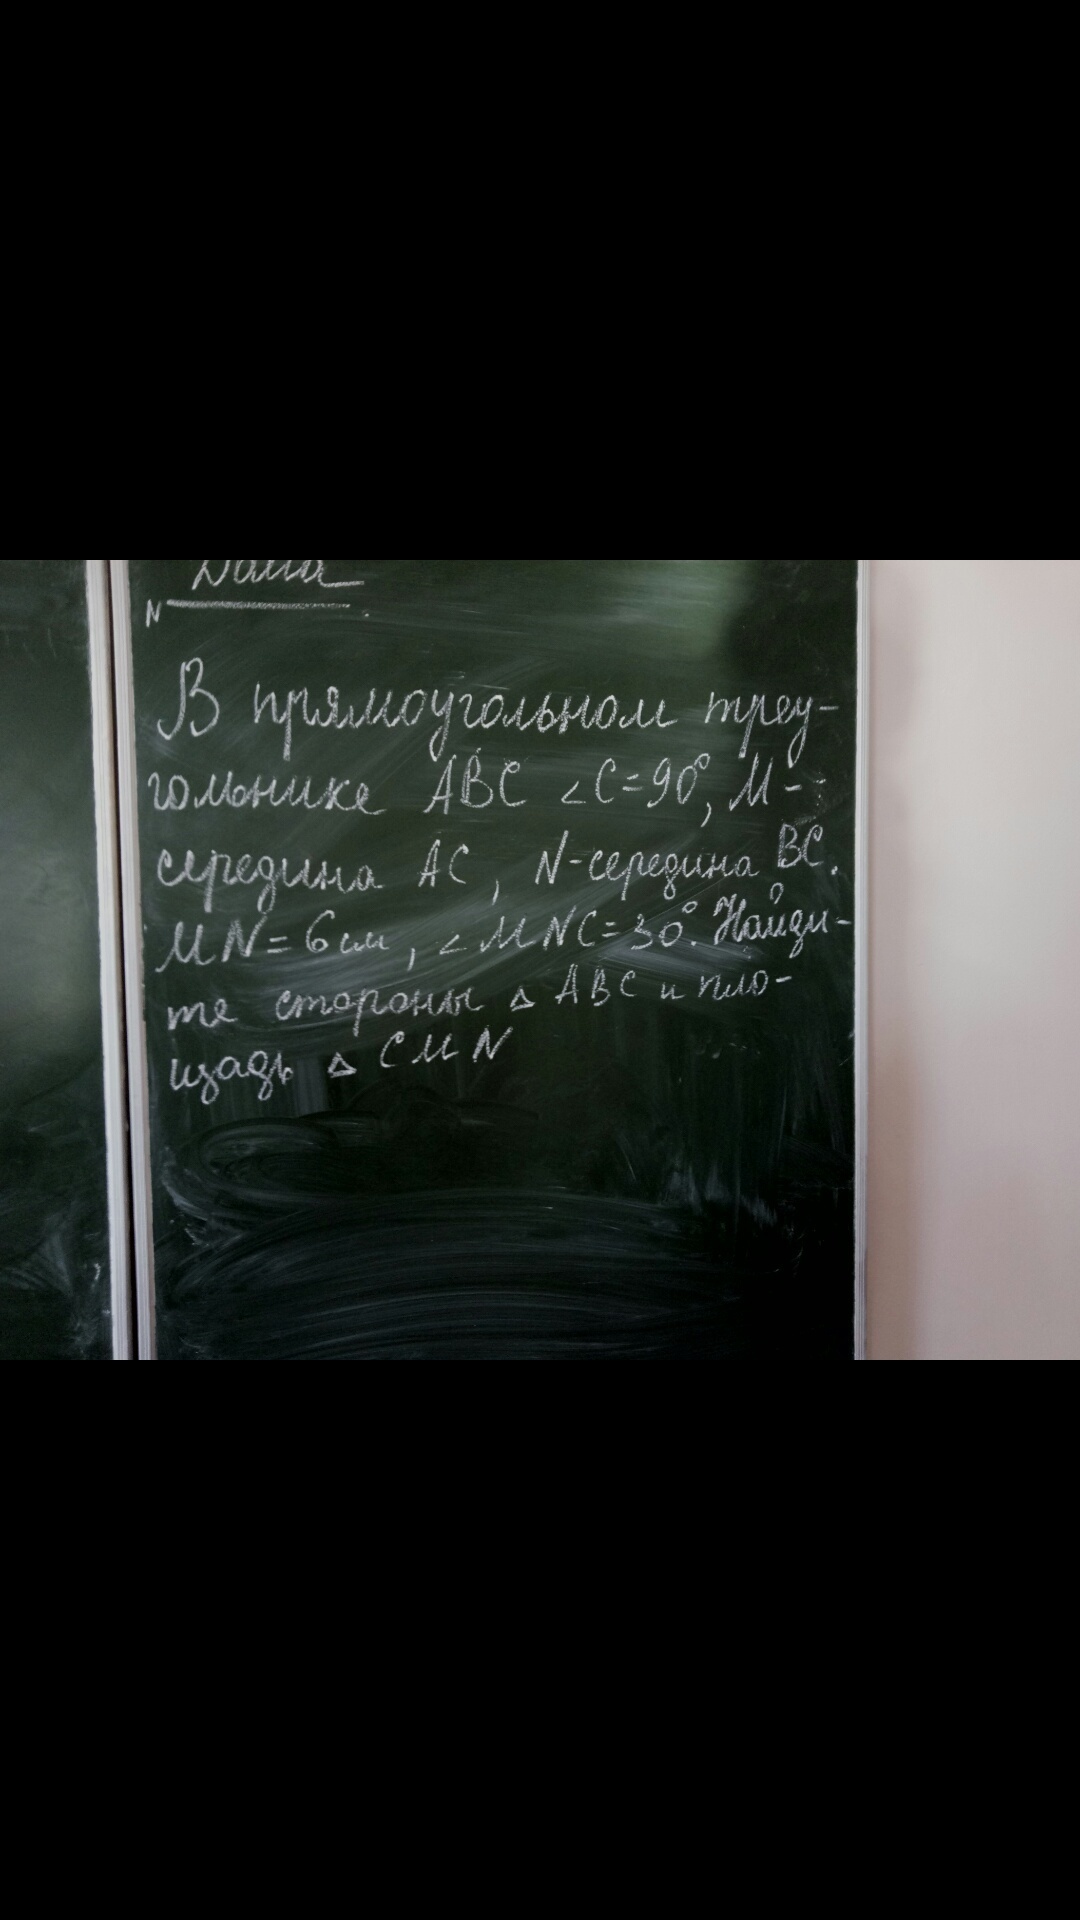 N
В прямоугольном треу-
гольнике ABC ∠C=90°, M-
середина AC, N-середина BC.
MN=6см, ∠MNC=30°. Найди-
те стороны △ ABC и пло-
щадь △ CMN